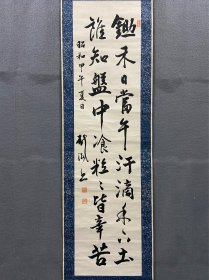 鋤禾日當午汗滴禾下土
誰知盤中飧粒〻皆辛苦
昭和甲午夏日